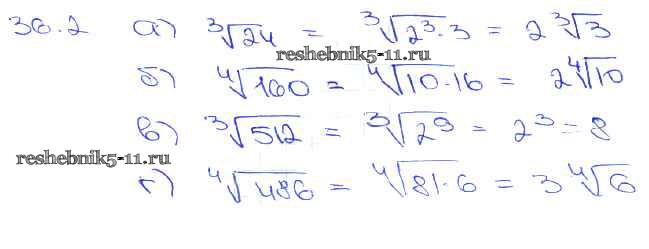 36.2 а) ∛24 = ∛(2³·3) = 2∛3
reshebnik5-11.ru
б) ∜160 = ∜(10·16) = 2∜10
в) ∛512 = ∛(2⁹) = 2³ = 8
reshebnik5-11.ru
г) ∜486 = ∜(81·6) = 3∜6